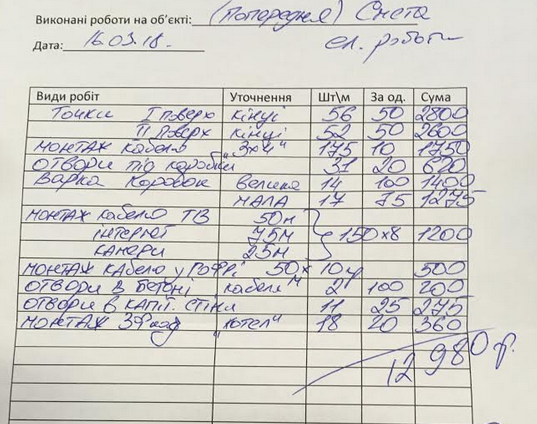 Виконані роботи на об'єкті: (Попередня) Смета
Дата: 16.03.18. ел. роботи
Види робіт Уточнення Шт\м За од. Сума
Точки І поверх кінці 56 50 2800
ІІ поверх кінці 52 50 2600
монтаж кабелю "3х4" 175 10 1750
отвори під коробки 31 20 620
Варка коробок велика 14 100 1400
мала 17 75 1275
монтаж кабелю ТВ 50м
інтернет 75м 150х8 1200
камери 25м
монтаж кабелю у гофрі 50х 10 500
отвори в бетоні кабелі 2 100 200
отвори в капіт. стіні 11 25 275
монтаж "котел" 18 20 360
12 980 р.